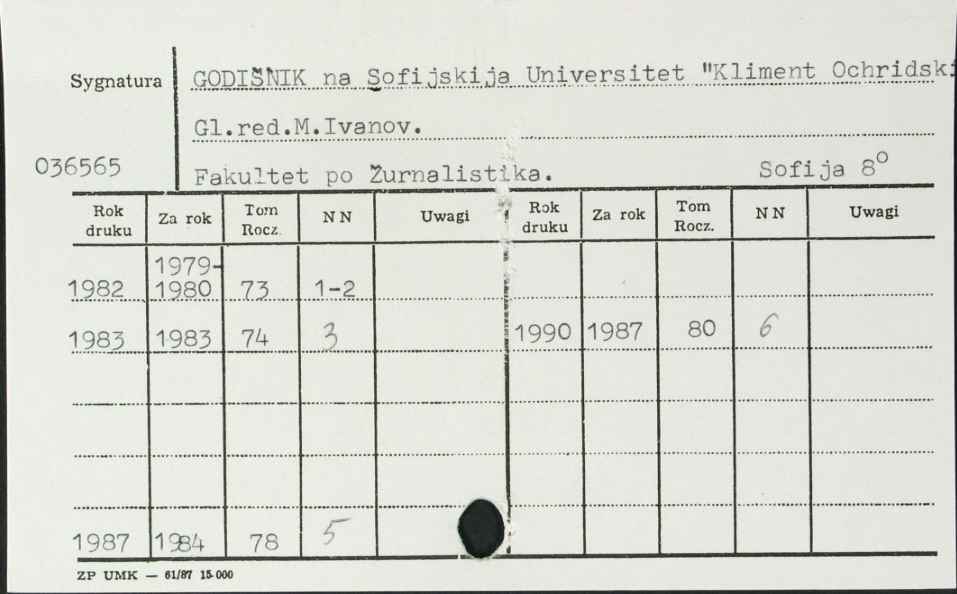 Sygnatura GODIŠNIK na Sofijskija Universitet "Kliment Ochridski
Gl.red.M.Ivanov.
036565 Fakultet po Žurnalistika. Sofija 8°
Rok druku Za rok Tom Rocz. N N Uwagi Rok druku Za rok Tom Rocz. N N Uwagi
1982 1979-1980 73 1-2
1983 1983 74 3 1990 1987 80 6
1987 1984 78 5
ZP UMK — 61/87 15-000